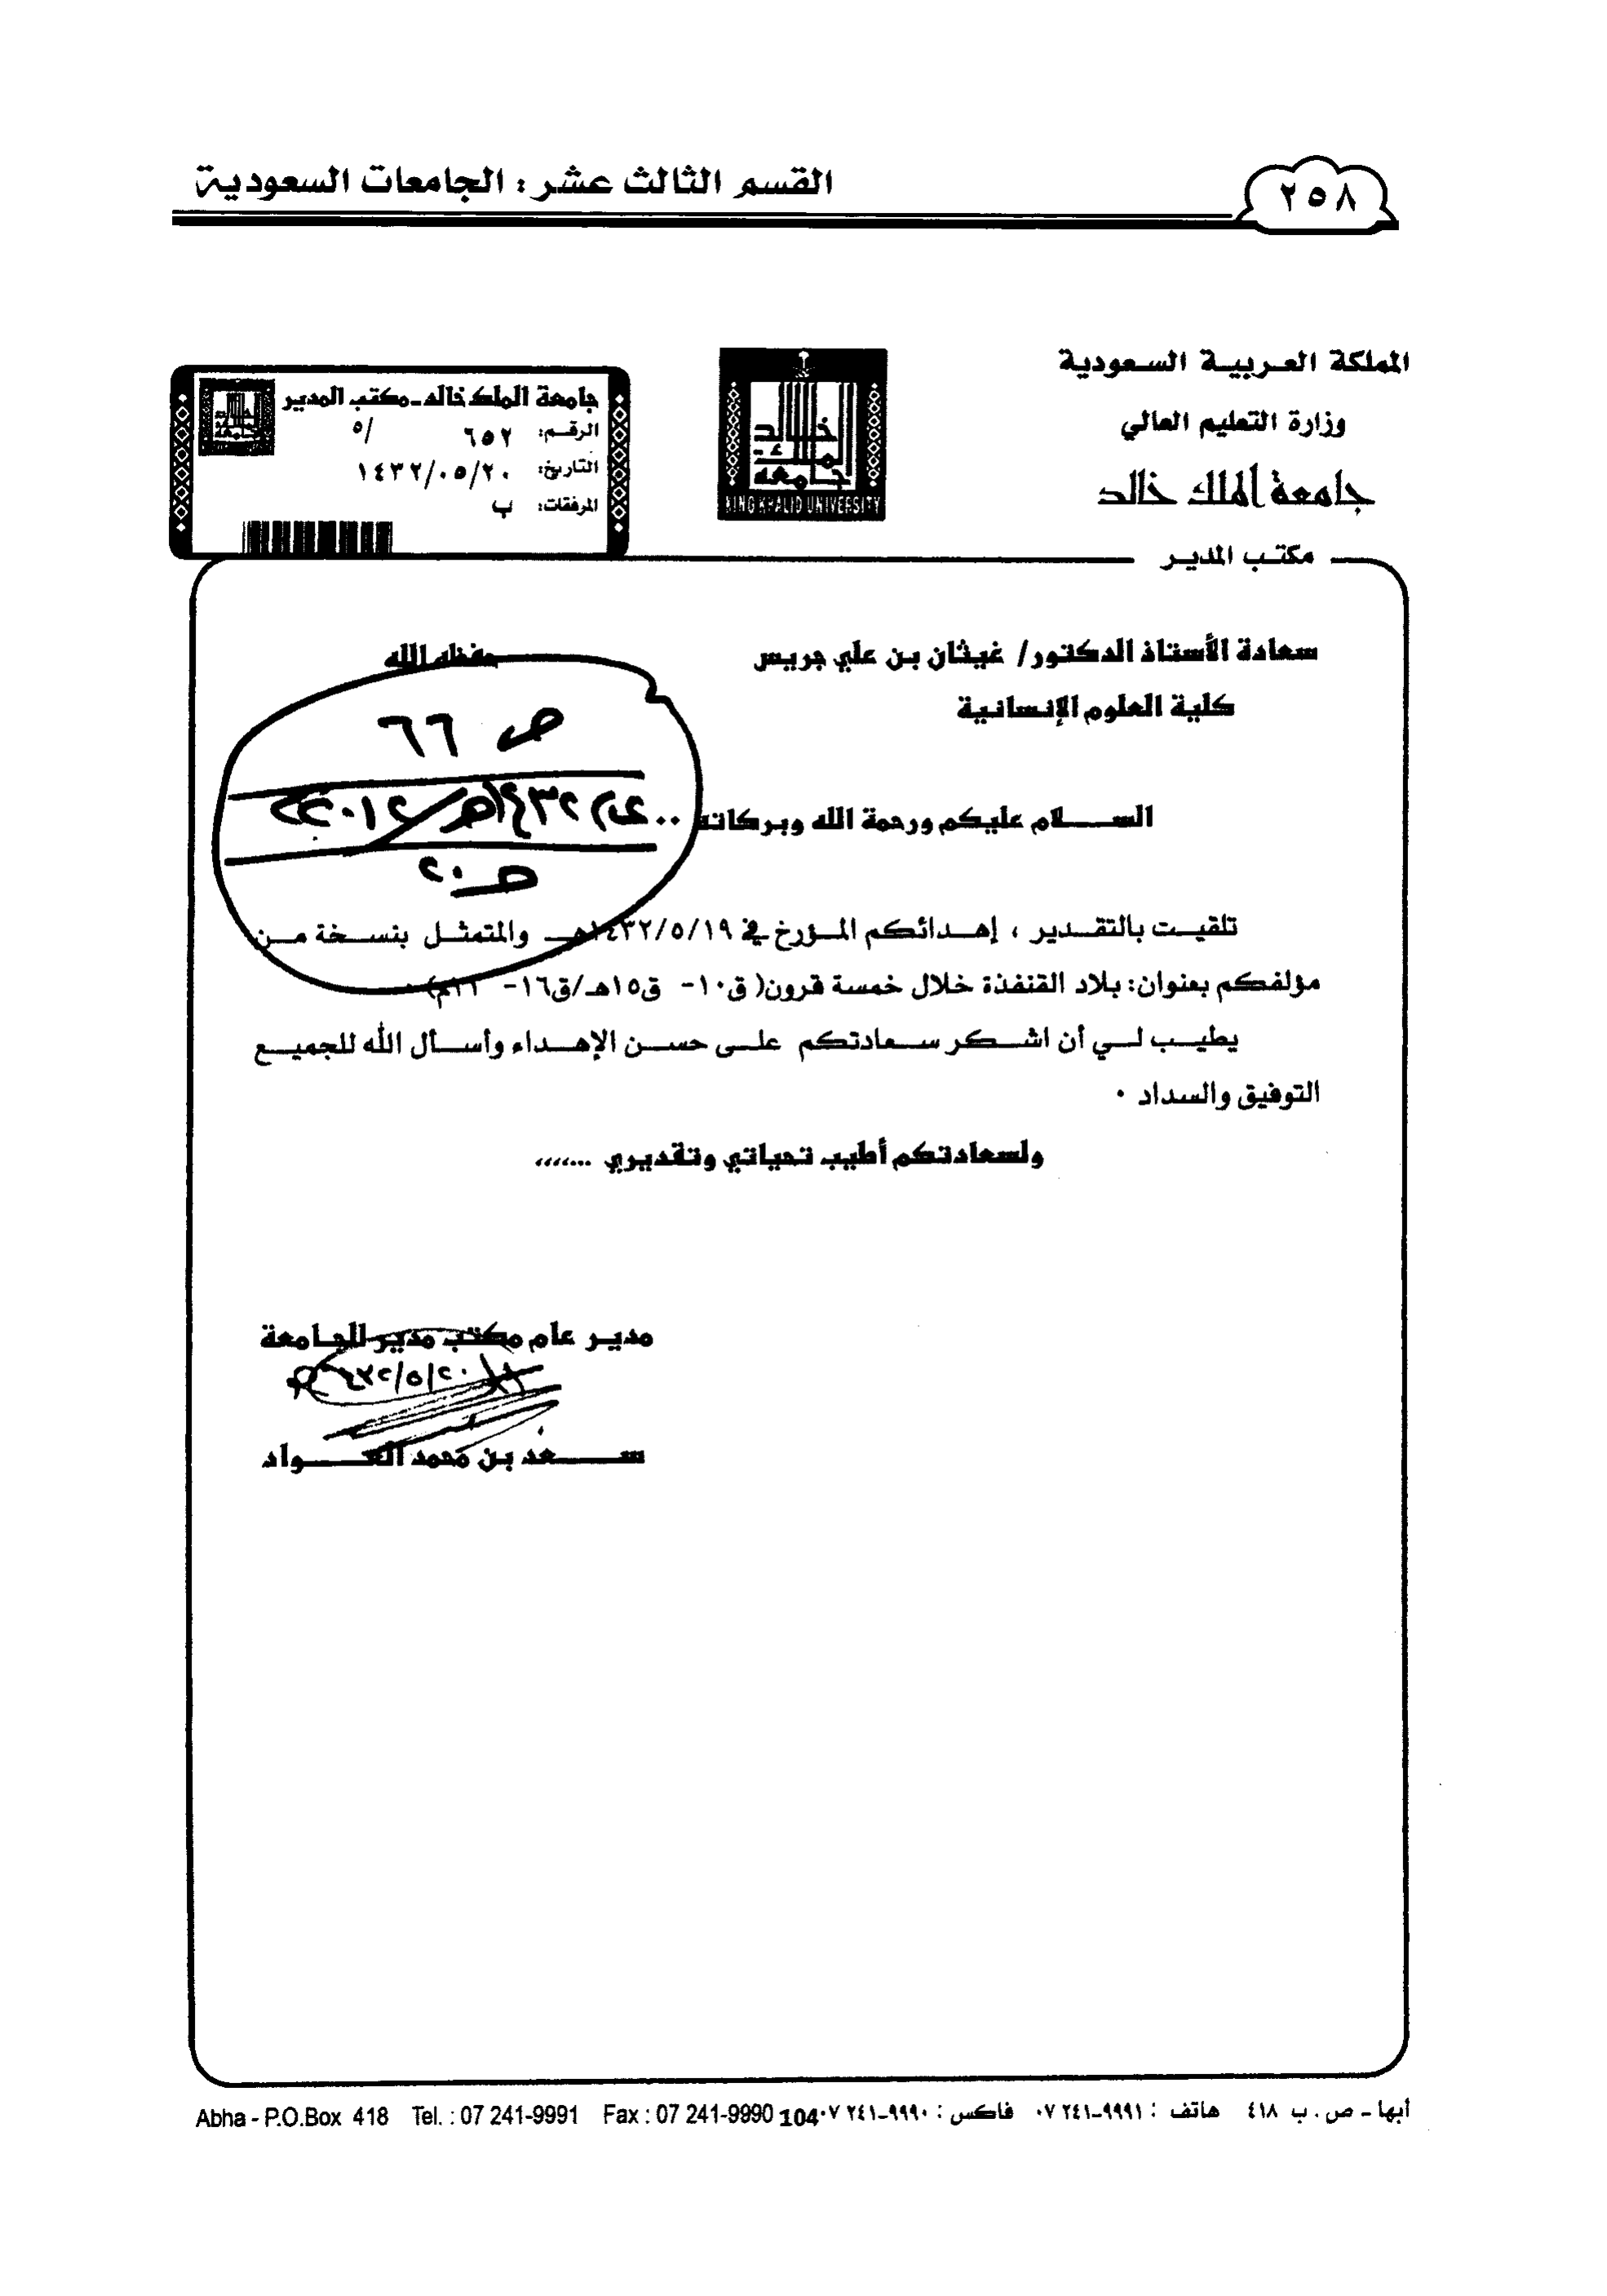 القسم الثالث عشر : الجامعات السعودية
٢٥٨
المملكة العربية السعودية
وزارة التعليم العالي
جامعة الملك خالد
مكتب المدير
خالد
الملك
جامعة
KING KHALID UNIVERSITY
جامعة الملك خالد - مكتب المدير
الرقم: ٦٥٢ /٥
التاريخ: ١٤٣٢/٠٥/٢٠
المرفقات: ب
سعادة الأستاذ الدكتور/ غيثان بن علي جريس حفظه الله
كلية العلوم الإنسانية
ص ٦٦
السلام عليكم ورحمة الله وبركاته ..
١٤٣٢هـ/٢٠١٢
تلقيت بالتقدير ، إهدائكم المؤرخ في ١٤٣٢/٥/١٩هـ والمتمثل بنسخة من
مؤلفكم بعنوان: بلاد القنفذة خلال خمسة قرون( ق١٠- ق١٥هـ/ق١٦- ٢١م) ٠
يطيب لي أن اشكر سعادتكم على حسن الإهداء وأسأل الله للجميع
التوفيق والسداد ٠
ولسعادتكم أطيب تحياتي وتقديري ...،،،،
مدير عام مكتب مدير الجامعة
١٤٣٢/٥/٢٠هـ
سعد بن محمد العواد
أبها - ص . ب ٤١٨ هاتف : ٩٩٩١-٢٤١ ٠٧ فاكس : ٩٩٩٠-٢٤١ ٠٧
104
Abha - P.O.Box 418 Tel. : 07 241-9991 Fax : 07 241-9990